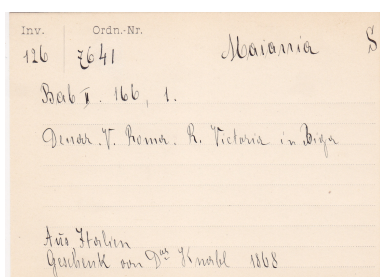 Inv. Ordn.-Nr.
126 7641 Maiania S
Bab II. 166, 1.
Denar. V. Roma. R. Victoria in Biga
Aus Italien
Geschenk von Dr Knabl 1868